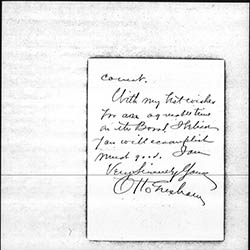 count.
With my best wishes
for an agreeable time
on the Board, I believe
you will accomplish
much good. I am
Very Sincerely Yours
Otto Gresham